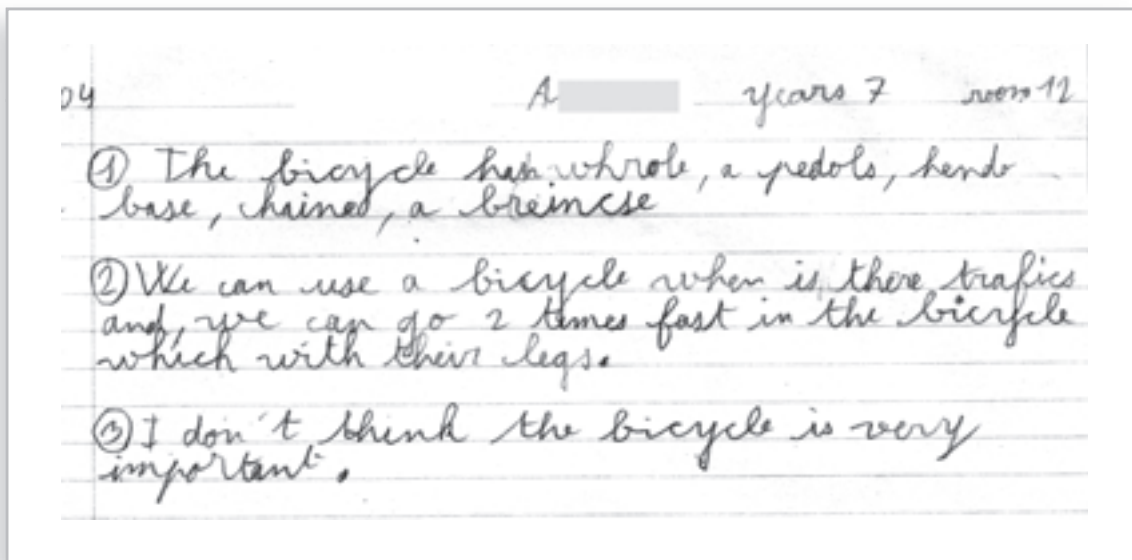 04 A years 7 room 12
① The bicycle has whrole, a pedols, hend
base, chained, a breincse
② We can use a bicycle when is there trafics
and, we can go 2 times fast in the bicycle
which with their legs.
③ I don't think the bicycle is very
important.